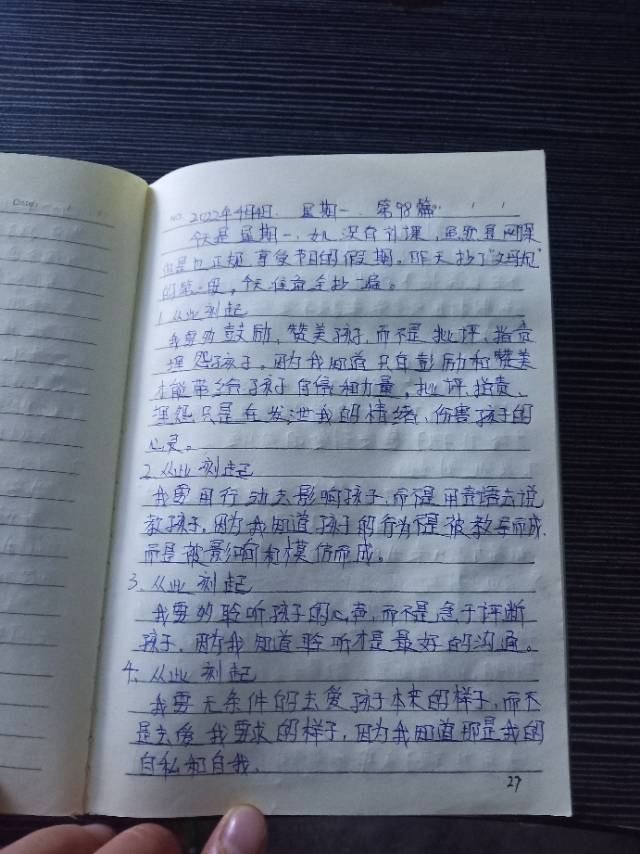 Date: / /
NO. 2022年4月4日. 星期一. 第98篇. / /
今天是星期一, 儿没有补课, 虽然是网课
但是也正规享受节日的假期。昨天抄了“父母规”
的第一段, 今天
1. 从此刻起
我要多鼓励, 赞美孩子, 而不是批评、指责
埋怨孩子。因为我知道只有鼓励和赞美
才能带给孩子自信和力量, 批评、指责、
埋怨只是在发泄我的情绪, 伤害孩子的
心灵。
2. 从此刻起
我要用行动去影响孩子, 而不是用言语去说
教孩子, 因为我知道孩子的行为不是被教导而成,
而是被影响和模仿而成。
3. 从此刻起
我要多聆听孩子的心声, 而不是急于评断
孩子, 因为我知道聆听才是最好的沟通。
4. 从此刻起
我要无条件的去爱孩子本来的样子, 而不
是去爱我要求的样子, 因为我知道那是我的
自私和自我.
27